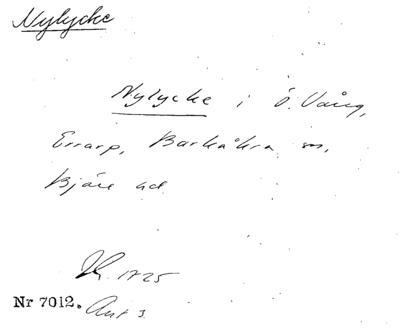 Nylycke
Nylycke i Ö. Vång,
Errarp, Barkåkra sn,
Bjäre hd
1725
Nr 7012. Ant 3.